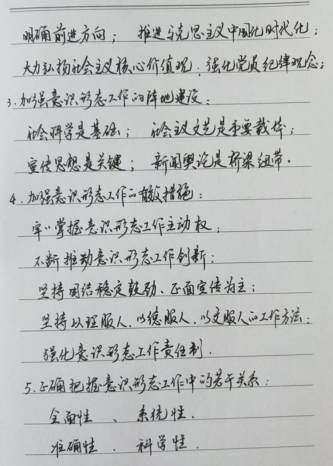 明确前进方向；推进马克思主义中国化时代化；
大力弘扬社会主义核心价值观；强化党反纪律观念；
3.加强意识形态工作的阵地建设：
社会科学是基础；社会主义文艺是重要载体；
宣传思想是关键；新闻舆论是桥梁纽带。
4.加强意识形态工作的有效措施：
牢牢掌握意识形态工作主动权；
不断推动意识形态工作创新；
坚持团结稳定鼓励、正面宣传为主；
坚持以理服人，以德服人，以文服人的工作方法；
强化意识形态工作责任制．
5.正确把握意识形态工作中的若干关系：
全面性、系统性．
准确性、科学性．